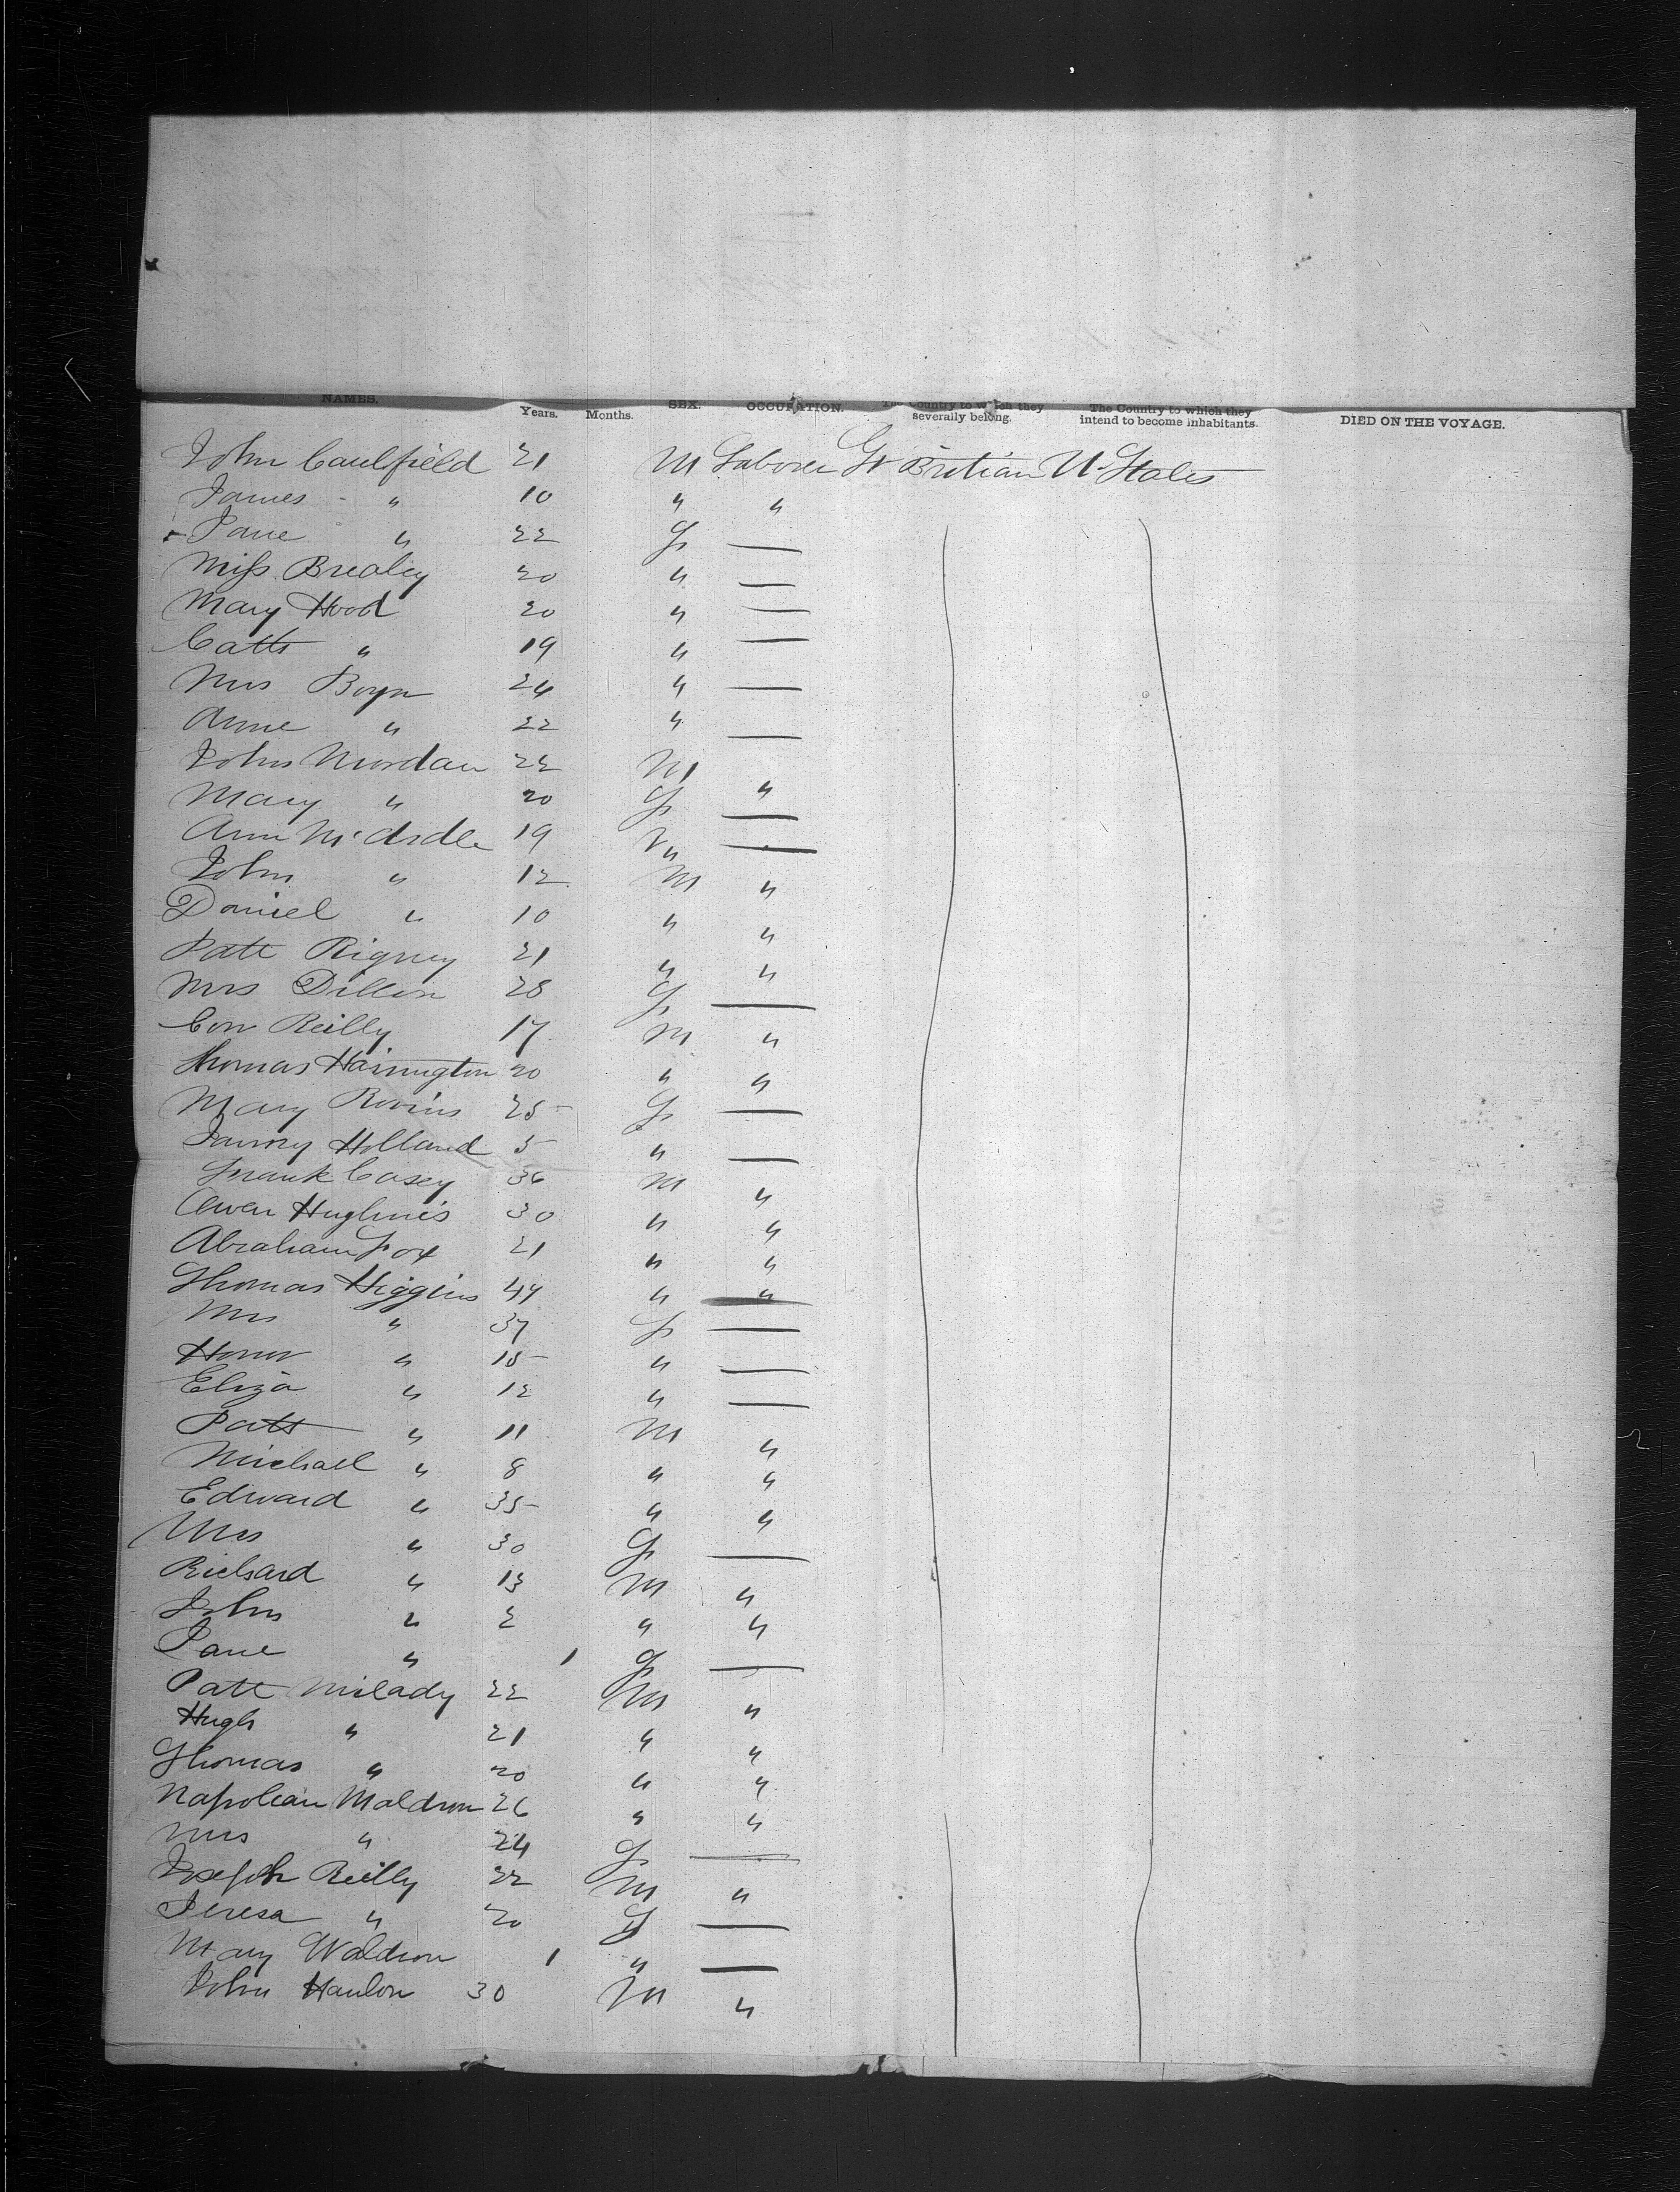 NAMES. Years. Months. SEX. OCCUPATION. The Country to which they severally belong. The Country to which they intend to become inhabitants. DIED ON THE VOYAGE.
John Caulfield 21 M Laborer Gt Britian U. States
James " 10 " "
Jane " 22 F —
Miss Brealey 20 " —
Mary Hood 20 " —
Cath " 19 " —
Mrs Boyn 24 " —
Anne " 22 " —
John Mordan 22 M "
Mary " 20 F —
Ann McArdle 19 " —
John " 12 M "
Daniel " 10 " "
Patt Rigney 21 " "
Mrs Dillon 28 F —
Con Reilly 17 M "
Thomas Harrington 20 " "
Mary 25 F —
Fanny Holland 5 " —
Frank Casey 36 M "
Owen 30 " "
Abraham Fox 21 " "
Thomas Higgins 47 " "
Mrs " 37 F —
Honor " 15 " —
Eliza " 12 " —
Patt " 11 M "
Michael " 8 " "
Edward " 35 " "
Mrs " 30 F —
Richard " 13 M "
John " 2 " "
Jane " 1 F —
Patt Milady 22 M "
Hugh " 21 " "
Thomas " 20 " "
Napolean Maldron 26 " "
Mrs " 24 F —
Joseph Reilly 22 M "
Teresa " 20 F —
Mary Waldron 1 " —
John Hanlon 30 M "